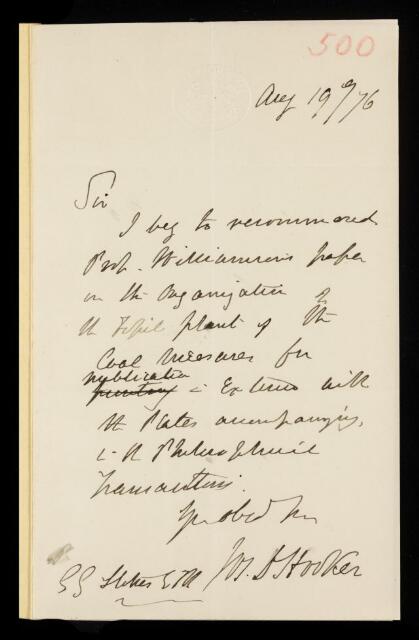 500
Aug 19th/76
Sir
I beg to recommend
Prof. Williamson's paper
on the Organization of
the Fossil plants of the
Coal Measures for
publication
printing in Extenso with
the Plates accompanying,
in the Philosophical
Transactions.
Yr obed Sr
Jos. D Hooker
G G Stokes Esq